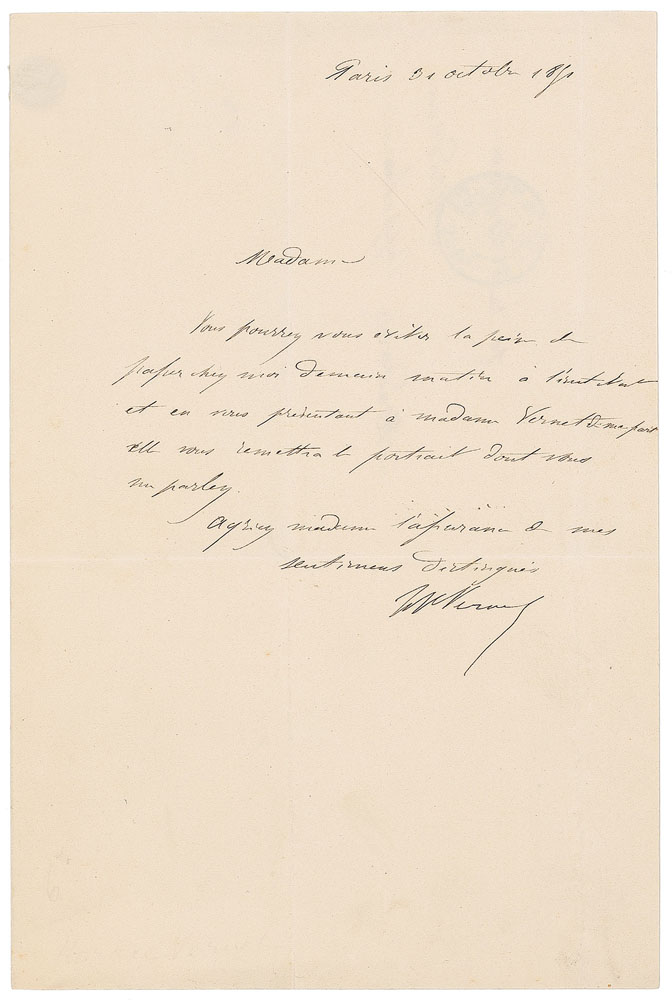 Paris 31 octobre 1851
Madame
Vous pourrez vous éviter la peine de
passer chez moi demain matin à l'institut
et en vous présentant à madame Vernet de ma part
elle vous remettra le portrait dont vous
me parlez.
agréez madame l'assurance de mes
sentiments distingués
H Vernet